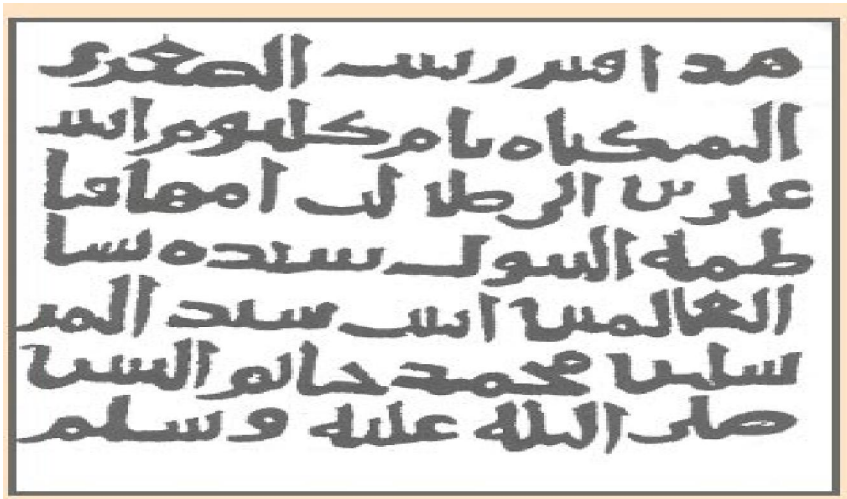 هذا قبر زينب الصغرى
المكناه بام كلثوم ابنت
على بن ابى طالب امها فا
طمة البتول سيدة نسا
العالمين ابنت سيد المر
سلين محمد خاتم النبيين
صلى الله عليه وسلم